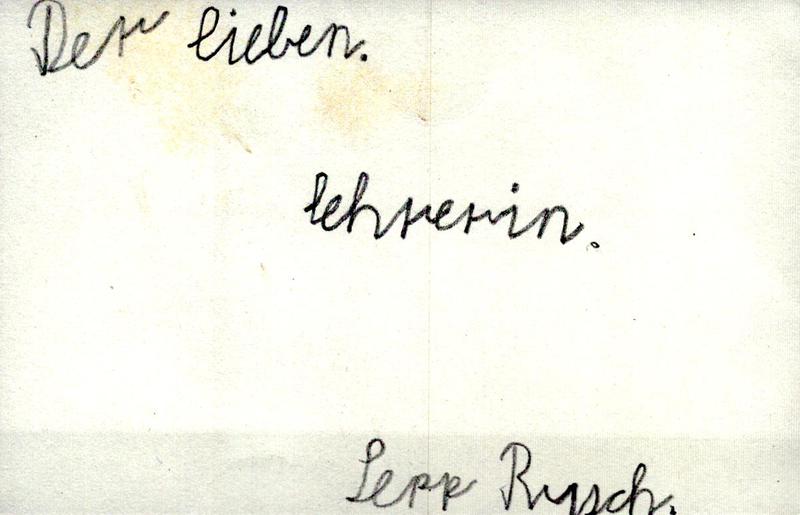 Der lieben.
lehrerin.
Sepp Rysch.